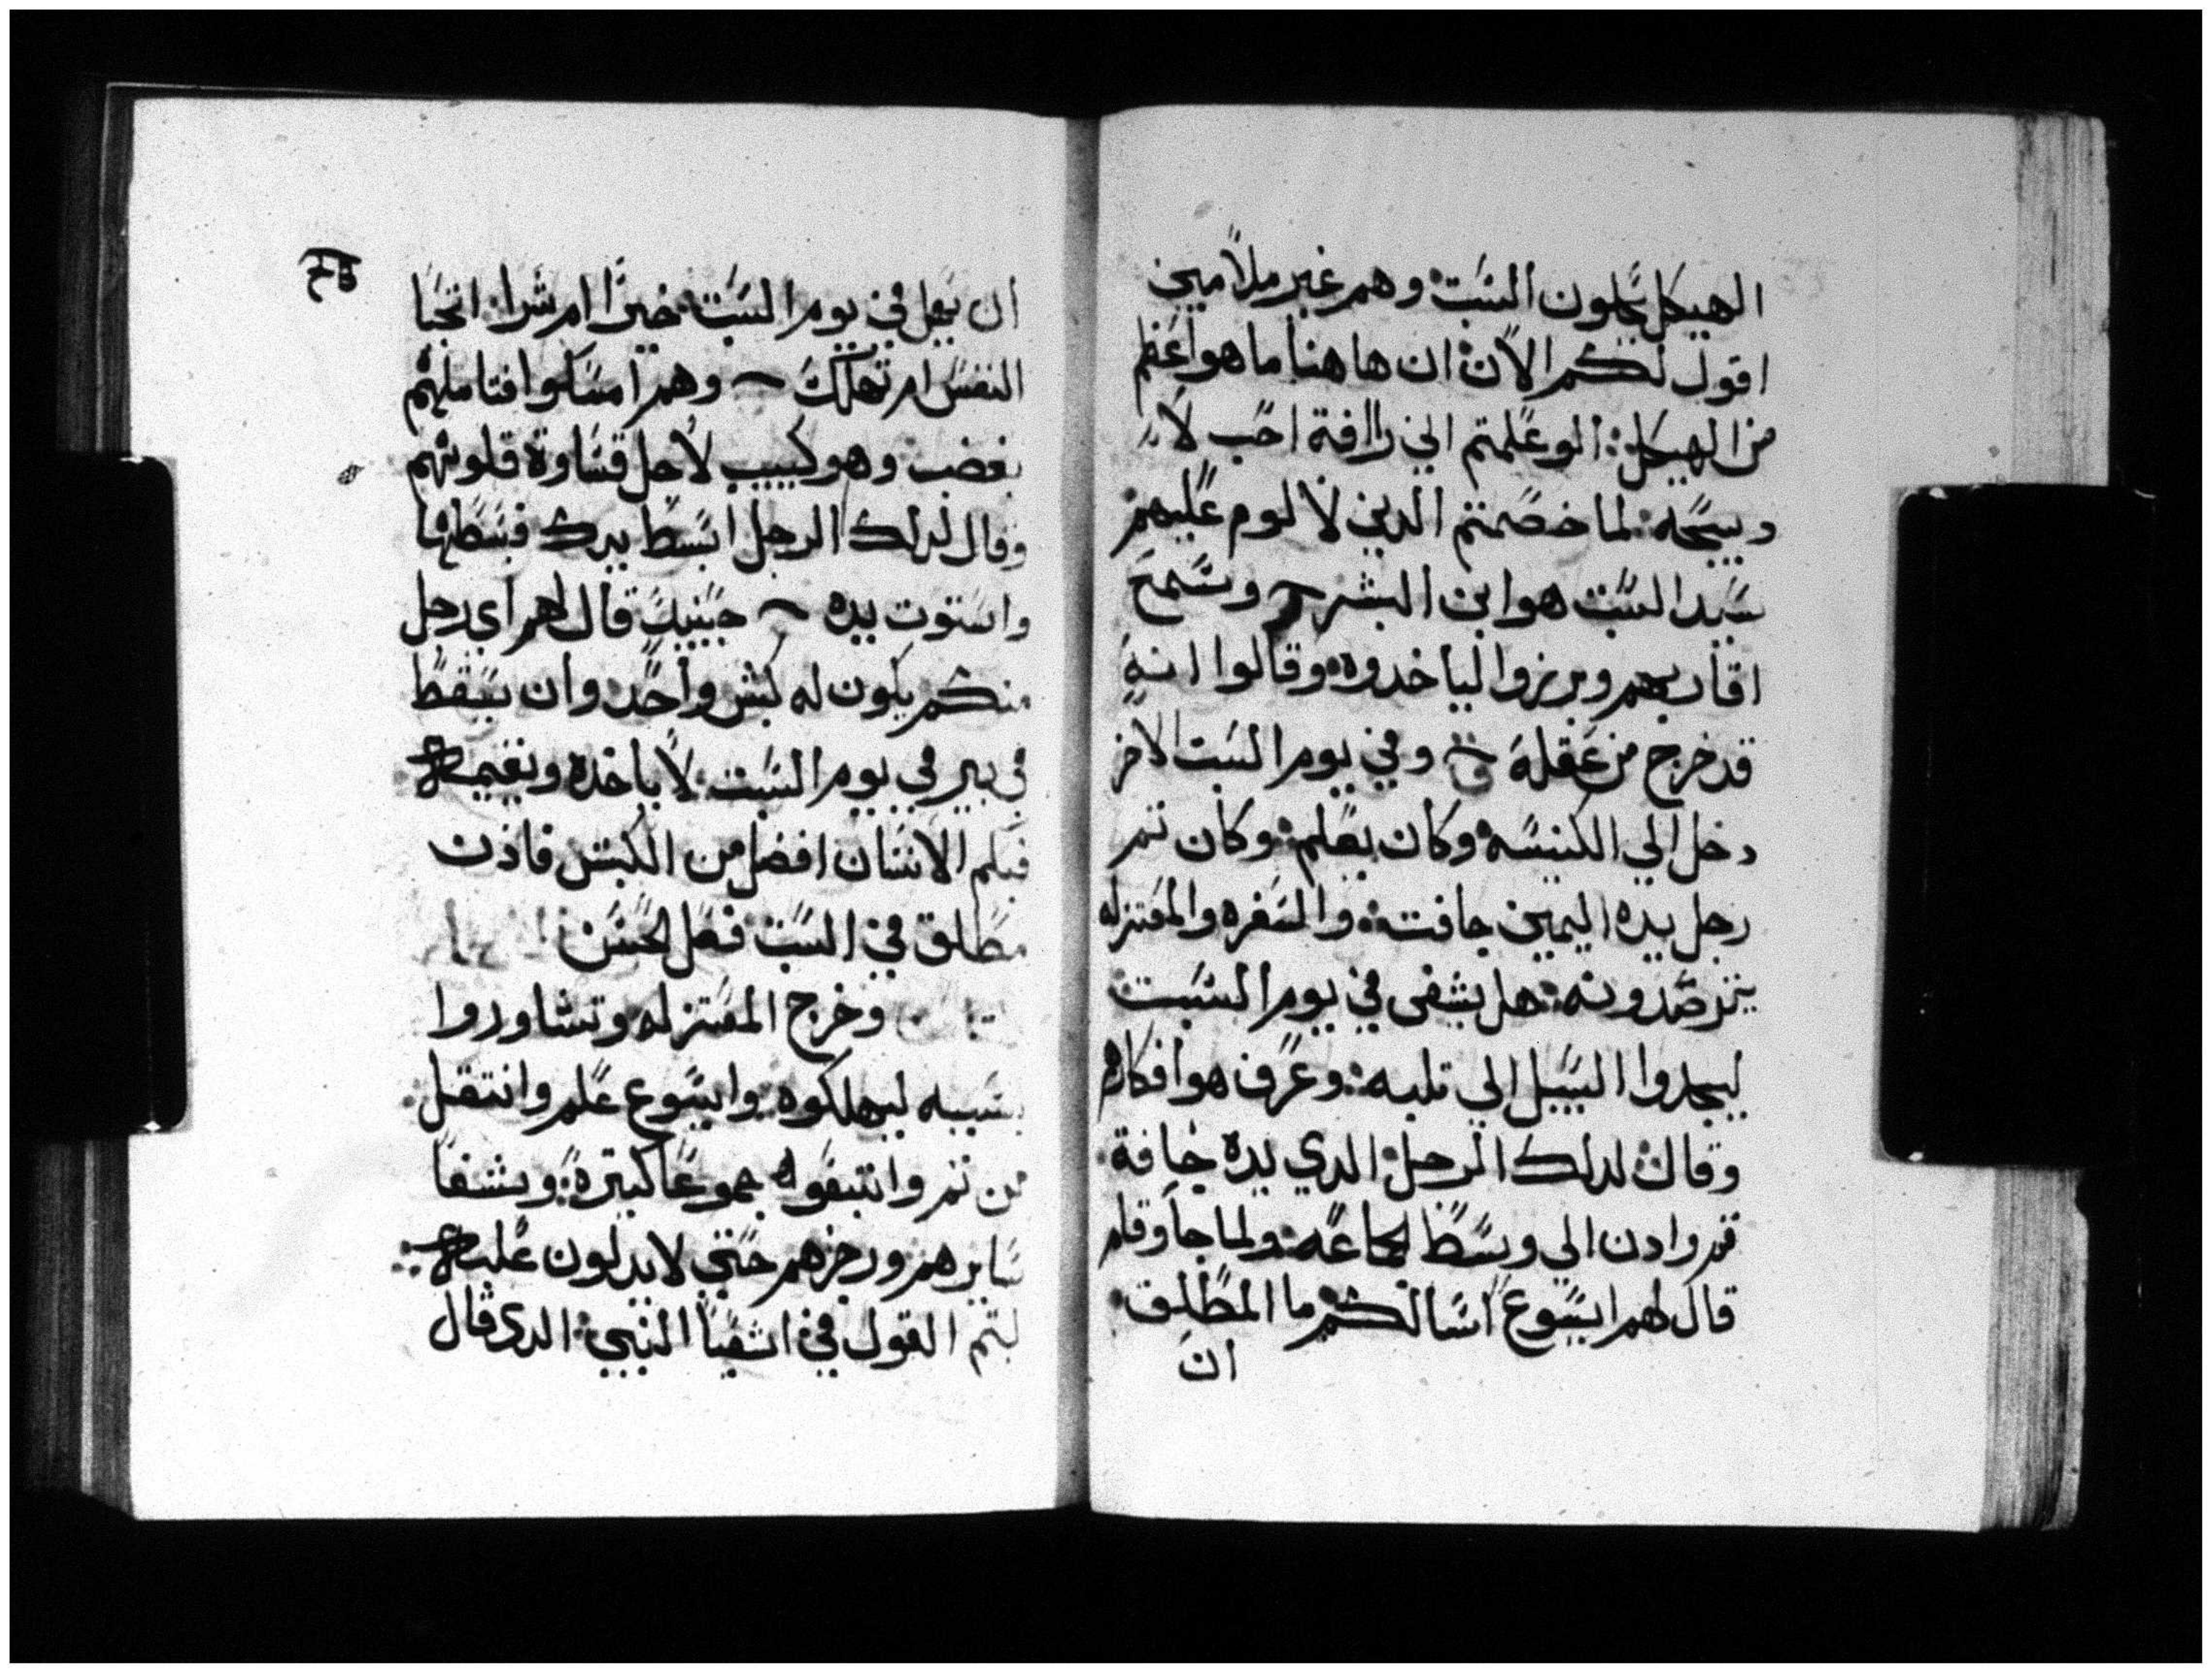 الهيكل يحلون السبت وهم غير ملاميين
اقول لكم الان ان هاهنا ما هو اعظم
من الهيكل لو علمتم اني راافة احب لا
دبيحه لما خصمتم الدين لا لوم عليهم
سيد السبت هو ابن البشر وسمع
اقاربهم وبرزوا لياخدوه وقالوا انه
قد خرج من عقله وفي يوم السبت الاخر
دخل الي الكنيسه وكان يعلم وكان تم
رجل يده اليمين جافته والسفره والمعتزله
يترصدونه هل يشفى في يوم السبت
ليجدوا السبيل الي تلبه وعرف هو افكارهم
وقال لدلك الرجل الدي يده جافة
قم وادن الي وسط الجماعه ولما جا وقام
قال لهم ايسوع اسالكم ما المطلق
ان
ان يعمل في يوم السبت خيرا ام شرا اتحيا
النفس ام تهلك وهم امسكوا فتاملهم
بغضب وهو كييب لاجل قساوة قلوبهم
وقال لدلك الرجل ابسط يدك فبسطها
واستوت يده حينيد قال لهم اي رجل
منكم يكون له كبش واحد وان سقط
في بير في يوم السبت لا ياخده ويقيمه
فبكم الانسان افضل من الكبش فادن
مطلق في السبت فعل الحسن
وخرج المعتزله وتشاوروا
بسببه ليهلكوه وايسوع علم وانتقل
من تم واتبعوه جموعا كتيرة وشفا
سايرهم وزجرهم حتي لا يدلون عليه
ليتم القول في اشعيا النبي الدي قال